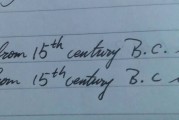 from 15th century B.C.
from 15th century B.C